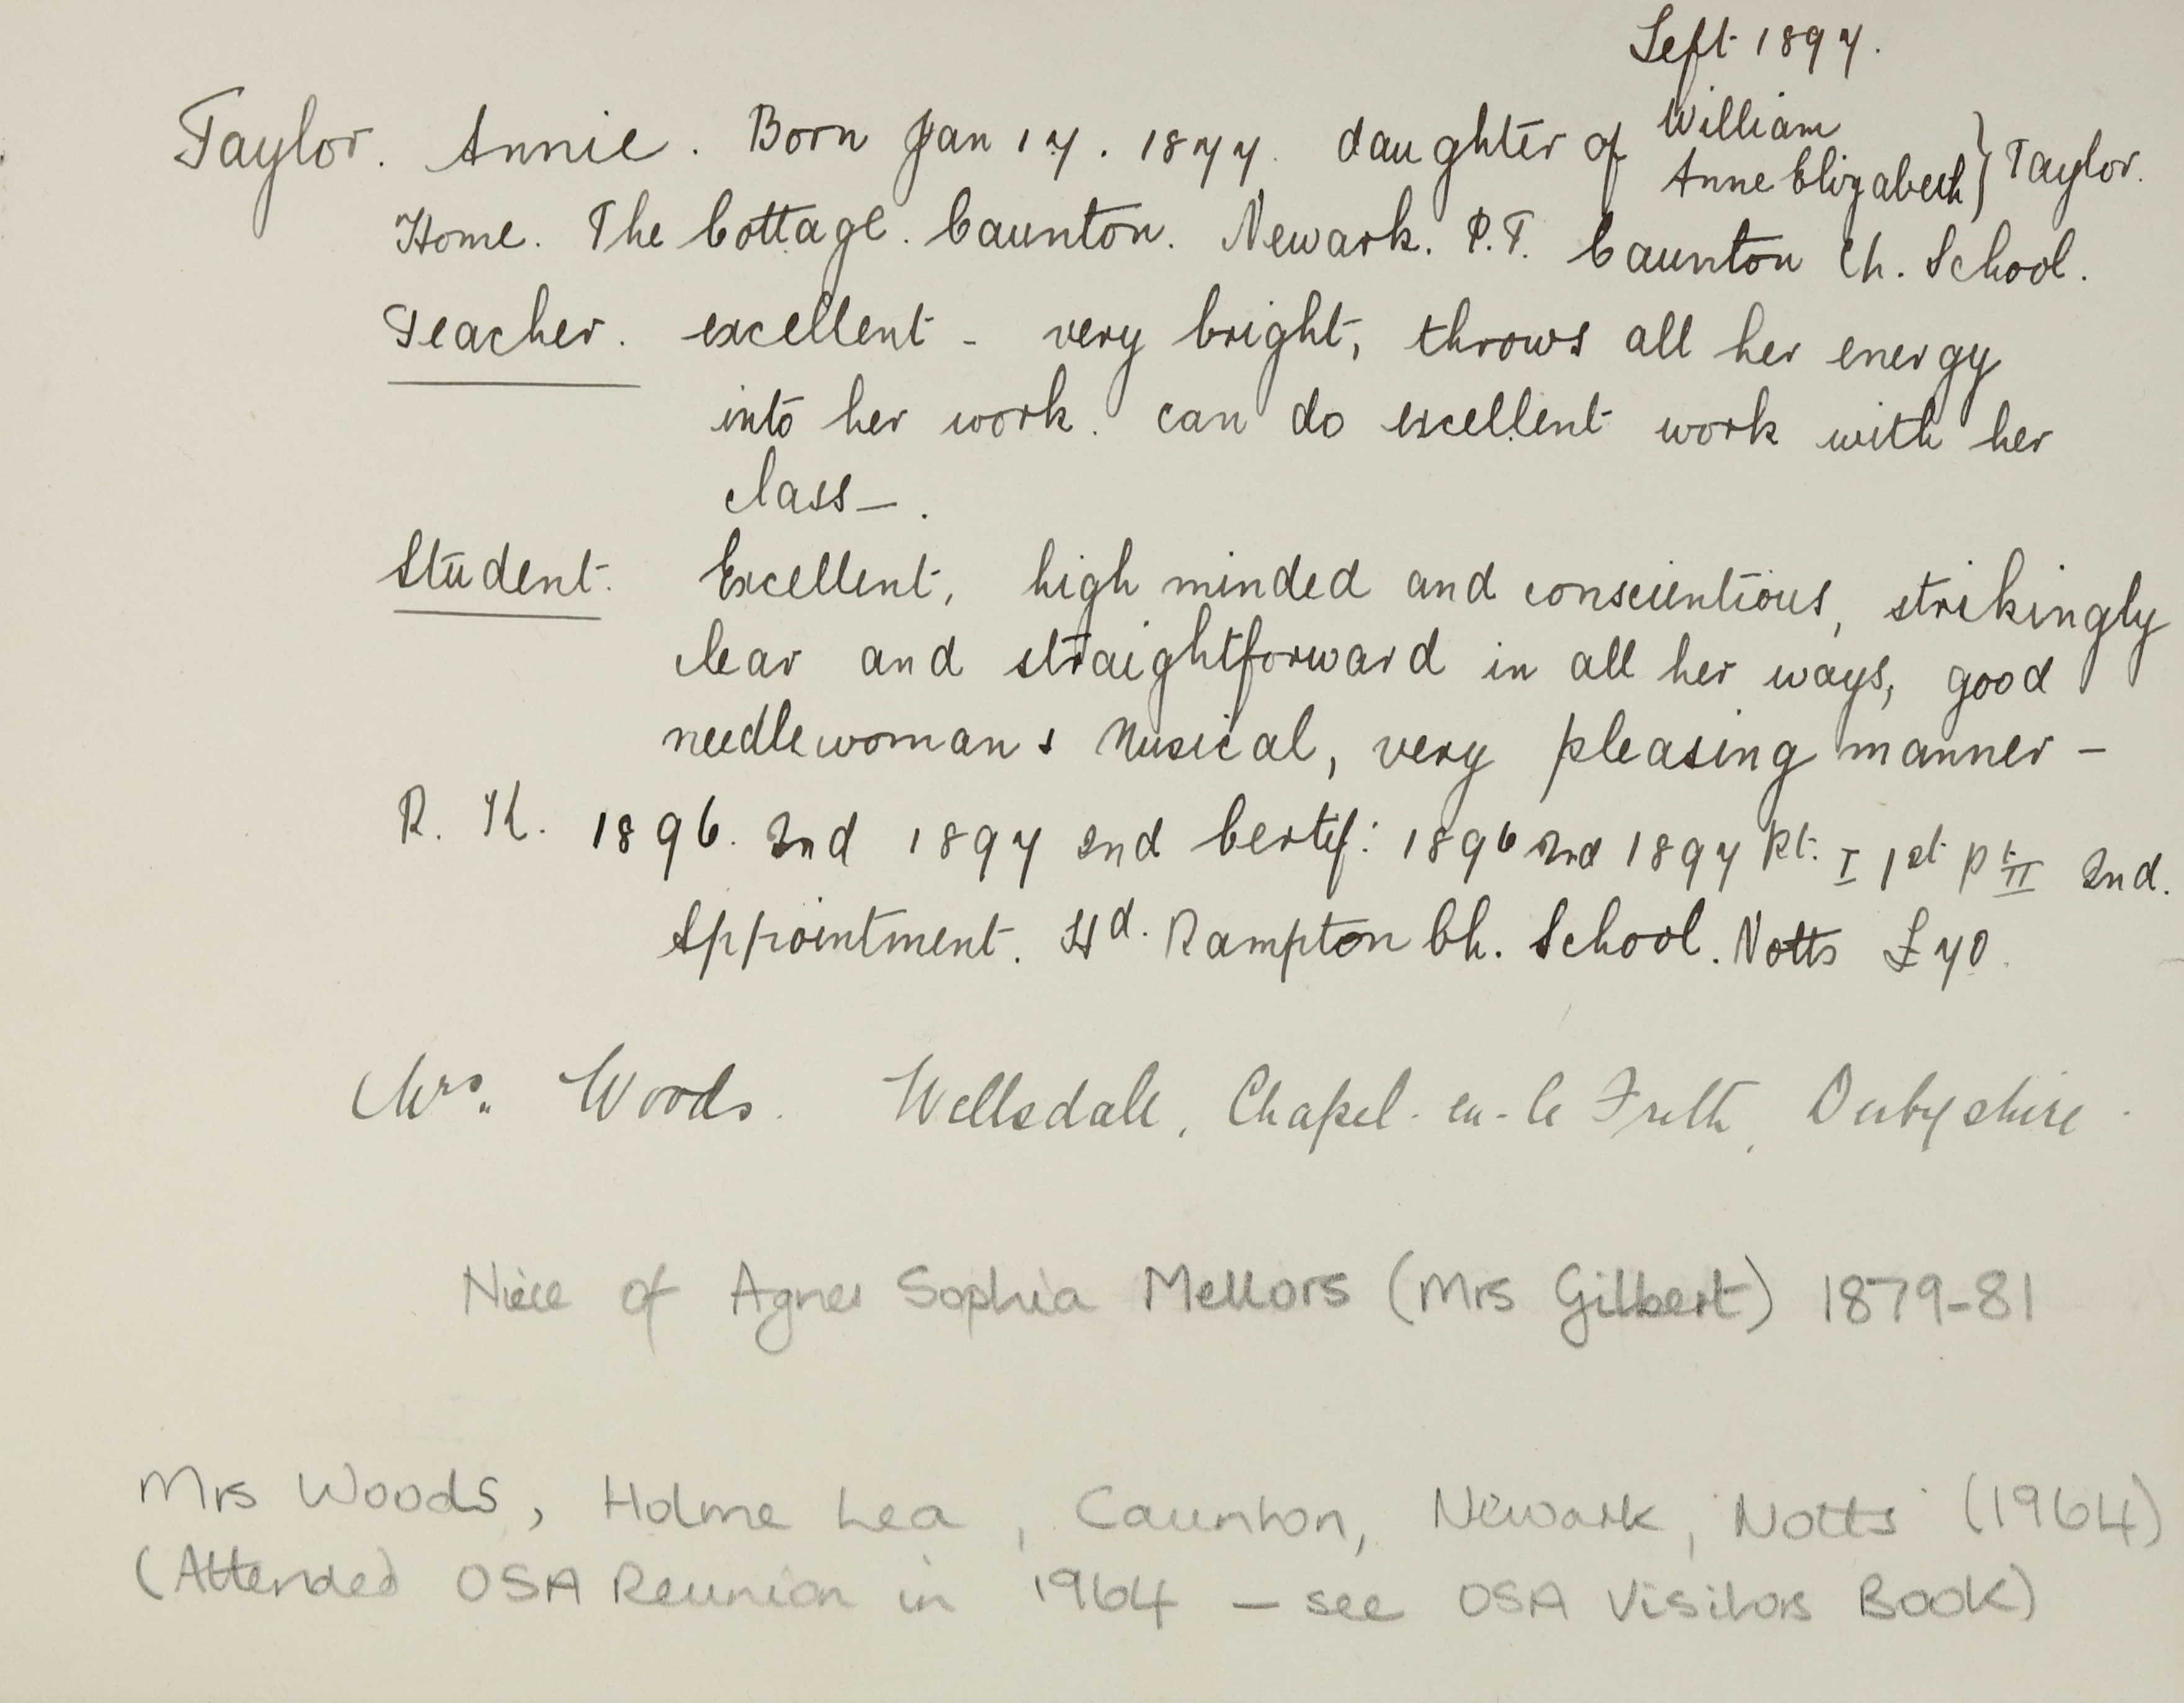 Left 1897.
Taylor. Annie. Born Jan 17. 1877. daughter of William
Anne Elizabeth } Taylor.
Home. The Cottage. Caunton. Newark. P.T. Caunton Ch. School.
Teacher. excellent - very bright, throws all her energy
into her work. can do excellent work with her
class - .
Student. Excellent, high minded and conscientious, strikingly
clear and straightforward in all her ways, good
needlewoman & Musical, very pleasing manner -
R. K. 1896. 2nd 1897 2nd Certif: 1896 2nd 1897 Pt. I 1st Pt II 2nd.
Appointment. Hd. Rampton Ch. School. Notts £70.
Mrs. Woods. Wellsdale, Chapel-en-le Frith, Derbyshire.
Niece of Agnes Sophia Mellors (Mrs Gilbert) 1879-81
Mrs Woods, Holme Lea, Caunton, Newark, Notts (1964)
(Attended OSA Reunion in 1964 - see OSA Visitors Book)